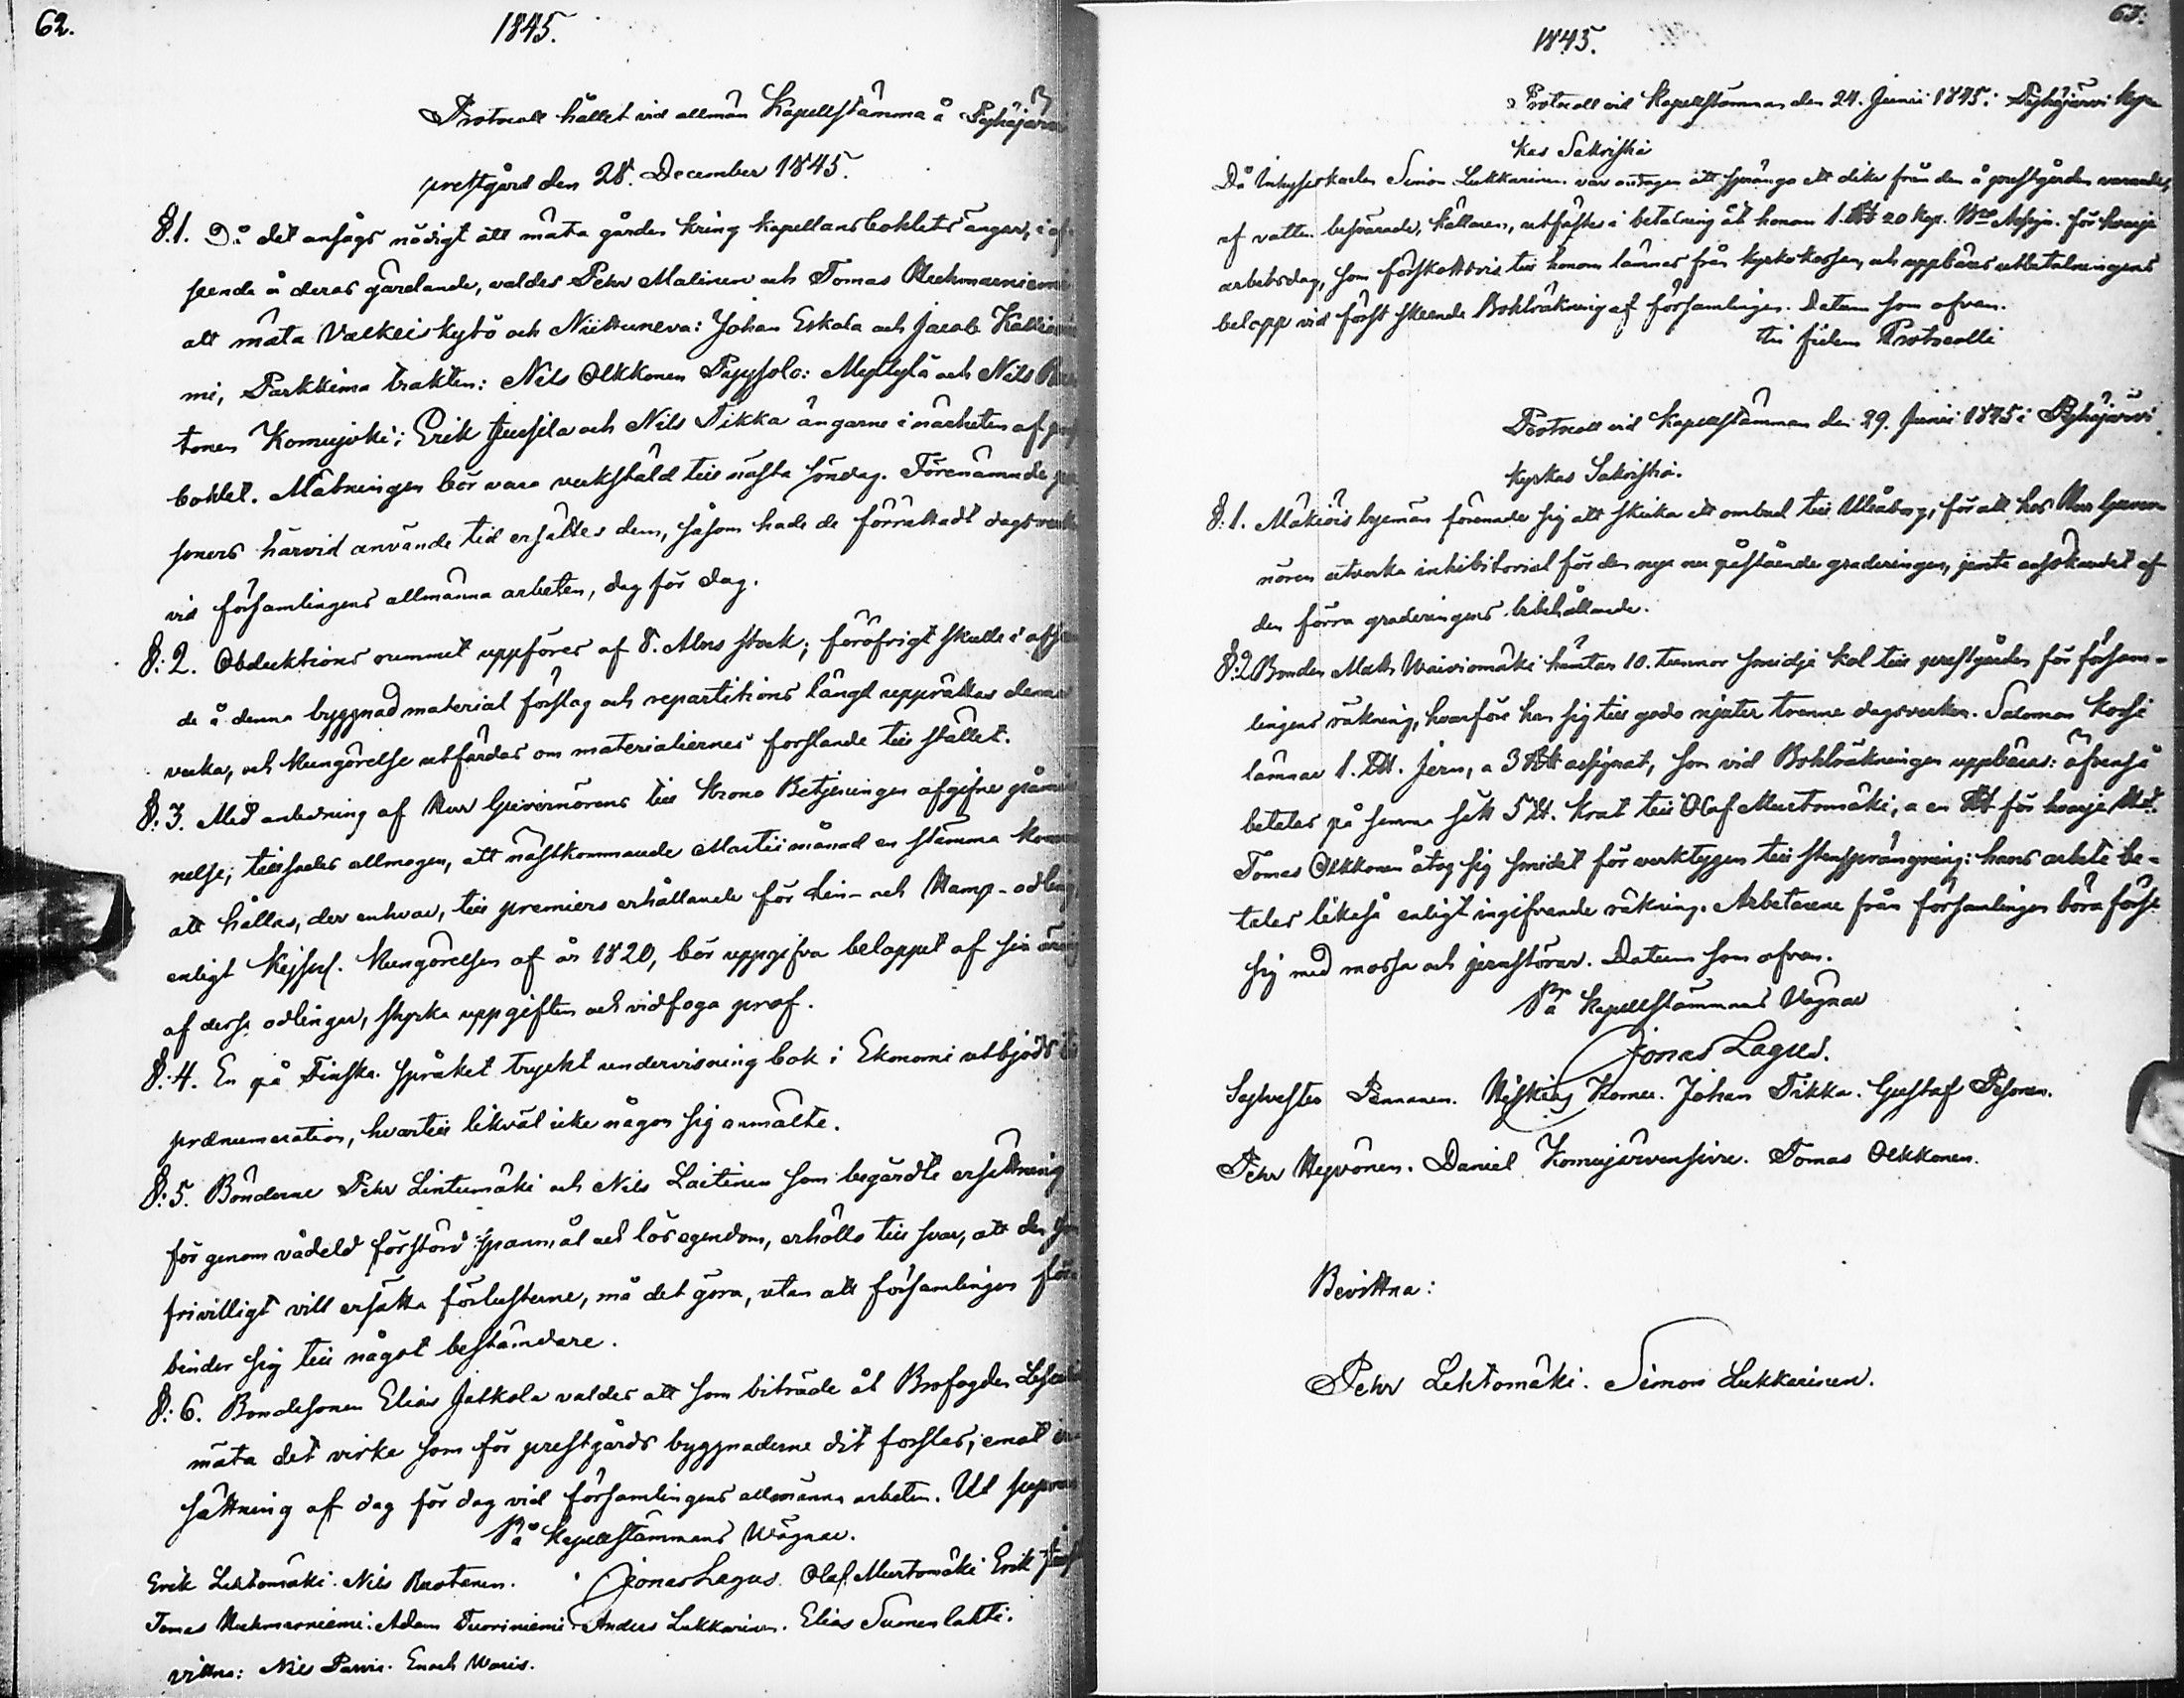 62.
1845.
Protocoll hållet vid allmän Kapellstämma å Pyhäjärvi
prestgård den 28. December 1845.
§.1. Då det ansågs nödigt att mäta gården kring kapellansbohlets ängar, i af-
seende å deras gärdande, valdes Pehr Malinen och Tomas Huhmarniemi
att mäta Valkeiskytö och Niittuneva: Johan Eskola och Jacob Kallioie
mi, Parkkima trakten: Nils Olkkonen Pyysalo: Myllylä och Nils Ru
tonen Komujoki: Erik Jussila och Nils Tikka ängarne i närheten af
bohlet. Mätningen bör vara verkstäld till nästa söndag. Förenämnde per
soners härvid använde tid ersättes dem, såsom hade de förrättadt dagsverk
vid församlingens allmänna arbeten, dag för dag.
§:2. Obduktions rummet uppföres af 8. Alns stock; föröfrigt skulle i afseen
de å denna byggnad material förslag och repartitions längd upprättas denna
vecka, och kungörelse utfärdas om materialiernes forslande till stället.
§:3. Med anledning af Herr Guvernörens till Krono Betjeningen afgifne påmin
nelse, tillsades allmogen, att nästkommande Martii månad en stämma kom
att hållas, der enhvar, till premiers erhållande för Lin- och Hamp-odling,
enligt Kejserl. Kungörelsen af år 1820, bör uppgifva beloppet af sin
af desse odlingar, styrka uppgiften och vidfoga prof.
§:4. En på Finska språket tryckt undervisning bok i Ekonomi utbjöds till
prænumeration, hvartill likväl icke någon sig anmälte.
§:5. Bönderne Pehr Lintumäki och Nils Laitinen som begärdte ersättning
för genom vådeld förstörd spannmål och lösegendom, erhöllo till svar, att den som
frivilligt vill ersätta förlusterne, må det göra, utan att församlingen för-
binder sig till något bestämdare.
§:6. Bondesonen Elias Jatkola valdes att som biträde åt Brofogden
mäta det virke som för prestgårds byggnaderne dit forslas, emot er-
sättning af dag för dag vid församlingens allmänna arbeten. Ut supra
På Kapellstämmans Vägnar.
Erik Lehtomäki. Nils Ruotanen. Jonas Lagus. Olaf Murtomäki Erik
Tomas Huhmarniemi. Adam Tuoriniemi Anders Lukkarinen. Elias Suomenlahti.
vittna: Nils Parvis. Enoch Waris.
63.
1845.
Protocoll vid Kapellstämman den 24. Junii 1845 i Pyhäjärvi kyr-
kas Sakristia
Då Inhysiskarlen Simon Lukkarinen var antagen att spränga ett dike från den å prestgården varande,
af vatten besvärade, källaren, utfästes i betalning åt honom 1. Rbl 20 kop. Assign. för hvarje
arbetsdag, som förskottsvis till honom lämnas från kyrkokassan, och uppbäres utbetalningens
belopp vid först skeende Bohlräkning af församlingen. Datum som ofvan.
In fidem Protocolli
Protocoll vid Kapellstämman den 29. Junii 1845 i Pyhäjärvi
kyrkas Sakristia.
§:1. Mäkiöis byemän förenade sig att skicka ett ombud till Uleåborg, för att hos Herr Guver-
nören utverka inhibitorial för den nya nu påstående graderingen, jemte anhållandet af
den förra graderingens bibehållande.
§:2. Bonden Math Waiviomäki hämtar 10. tunnor smidje kol till prestgården för försam-
lingens räkning, hvarföre han sig till godo njuter tvenne dagsverken. Salomon Korsi
lämnar 1. Jern, a 3 assignat, som vid Bohlräkningen uppbäres: äfvenså
betalas på samma sätt 5 krut till Olaf Murtomäki, a en för hvarje
Tomas Olkkonen åtog sig smidet för verktygen till stensprängning: hans arbete be-
talas likaså enligt ingifvande räkning. Arbetarene från församlingen böra förse
sig med mossa och jernstörar. Datum som ofvan.
På Kapellstämmans Vägnar
Jonas Lagus.
Sylvester Pennanen. Hiskias Komu. Johan Tikka. Gustaf Pesonen.
Pehr Hyvönen. Daniel Komujärvensivu. Tomas Olkkonen.
Bevittna:
Pehr Lehtomäki. Simon Lukkarinen.